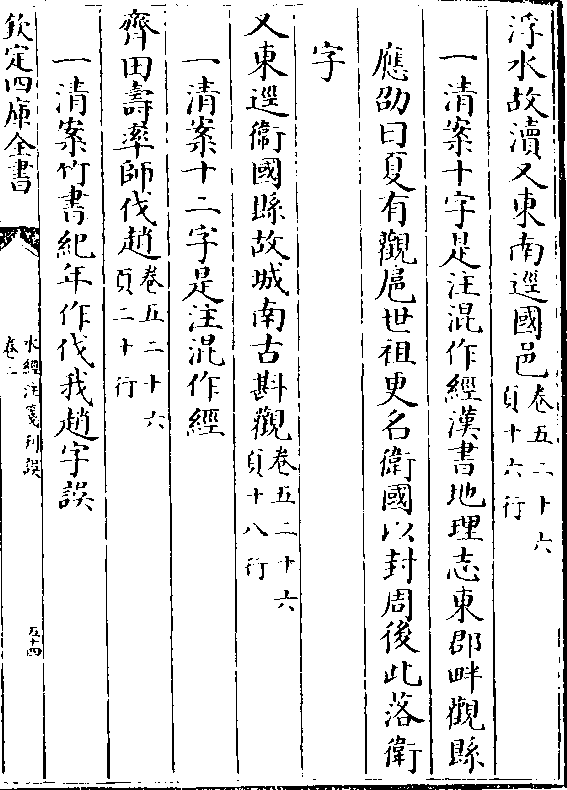 浮水故瀆又東南逕國邑卷五二十六頁十六行
一清案十字是注混作經漢書地理志東郡畔觀縣
應劭曰夏有觀扈世祖更名衛國以封周後此落衛
字
又東逕衞國縣故城南古斟觀卷五二十六頁十八行
一清案十二字是注混作經
齊田壽率師伐趙卷五二十六頁二十行
一清案竹書紀年作伐我趙字誤
欽定四庫全書
水經注箋刊誤
卷二
五十四